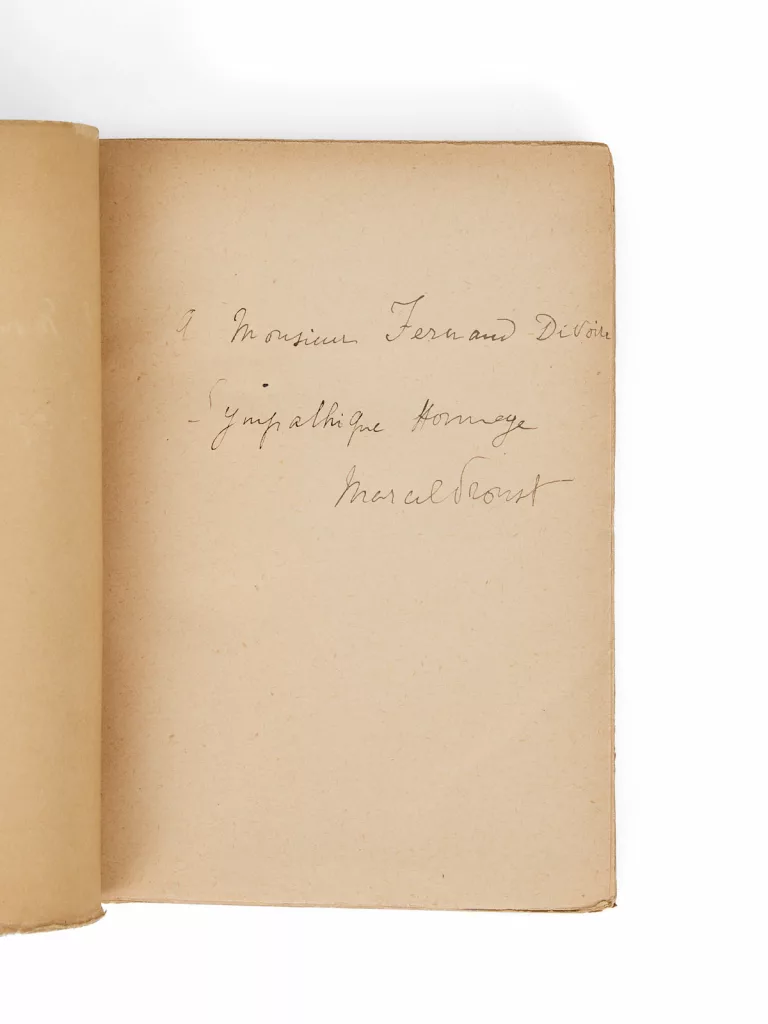 A Monsieur Fernand Divoire
Sympathique Hommage
Marcel Proust